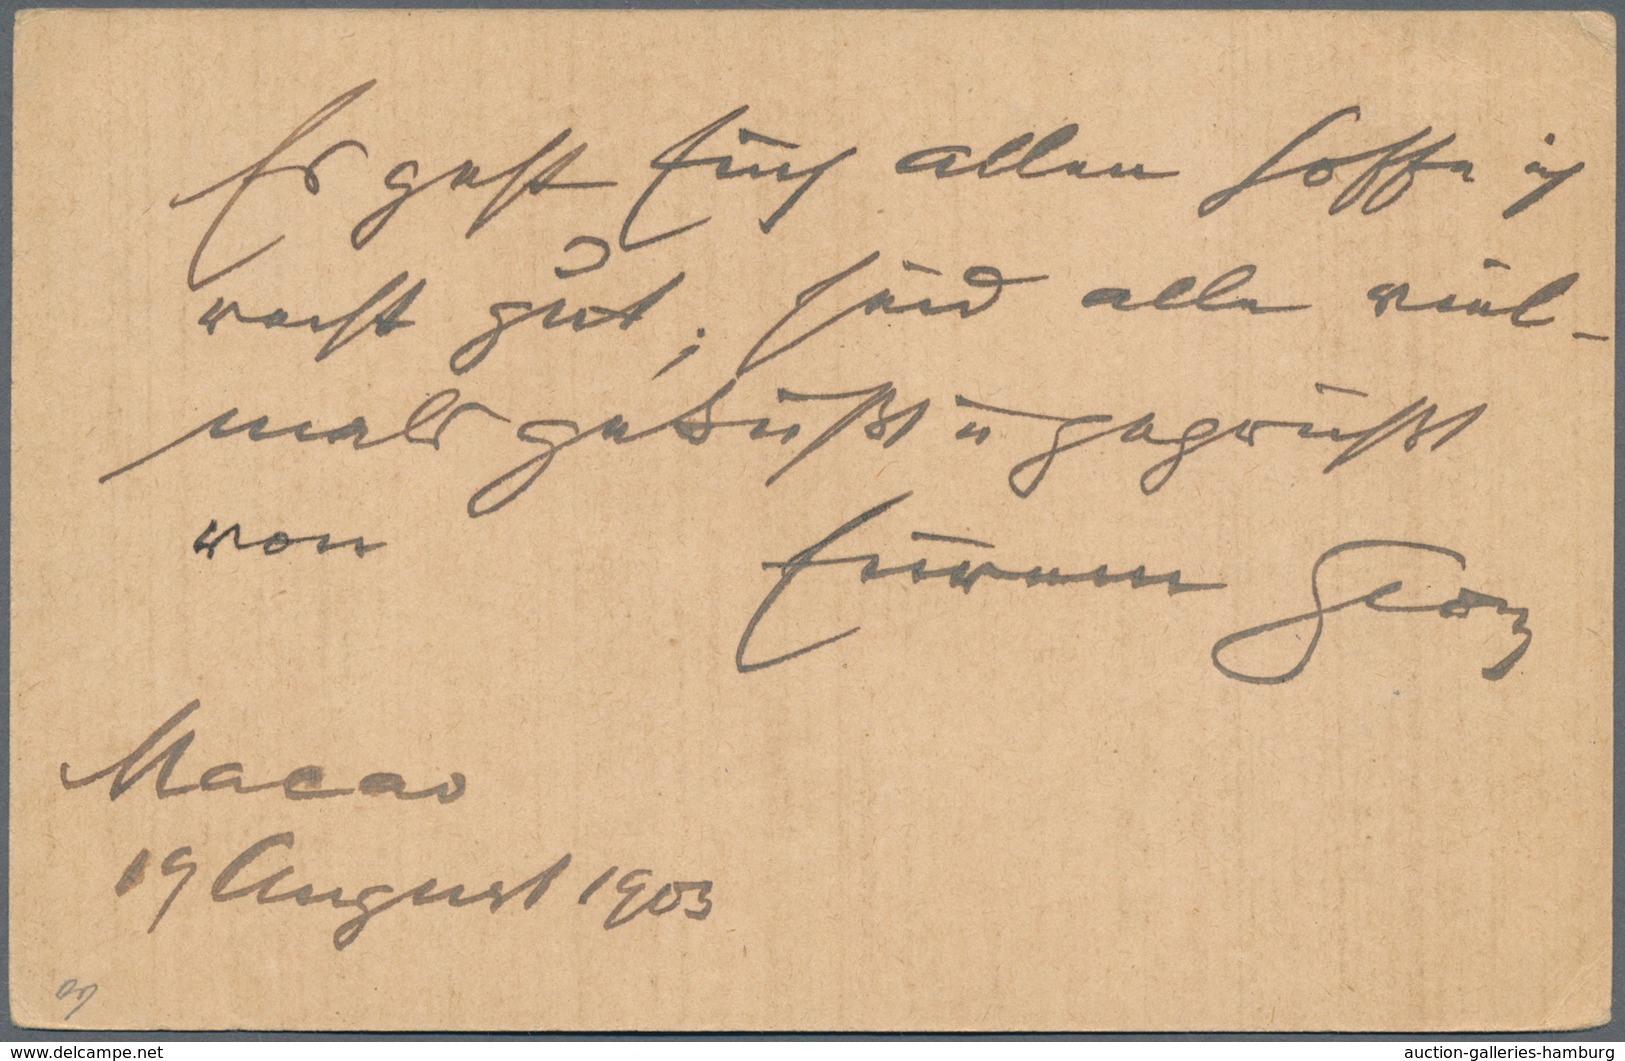 Es geht Euch allen hoffe ich
recht gut, seid alle viel-
mals geküßt u gegrüßt
von Eurem Georg
Macao
19 August 1903
delcampe.net
auction-galleries-hamburg